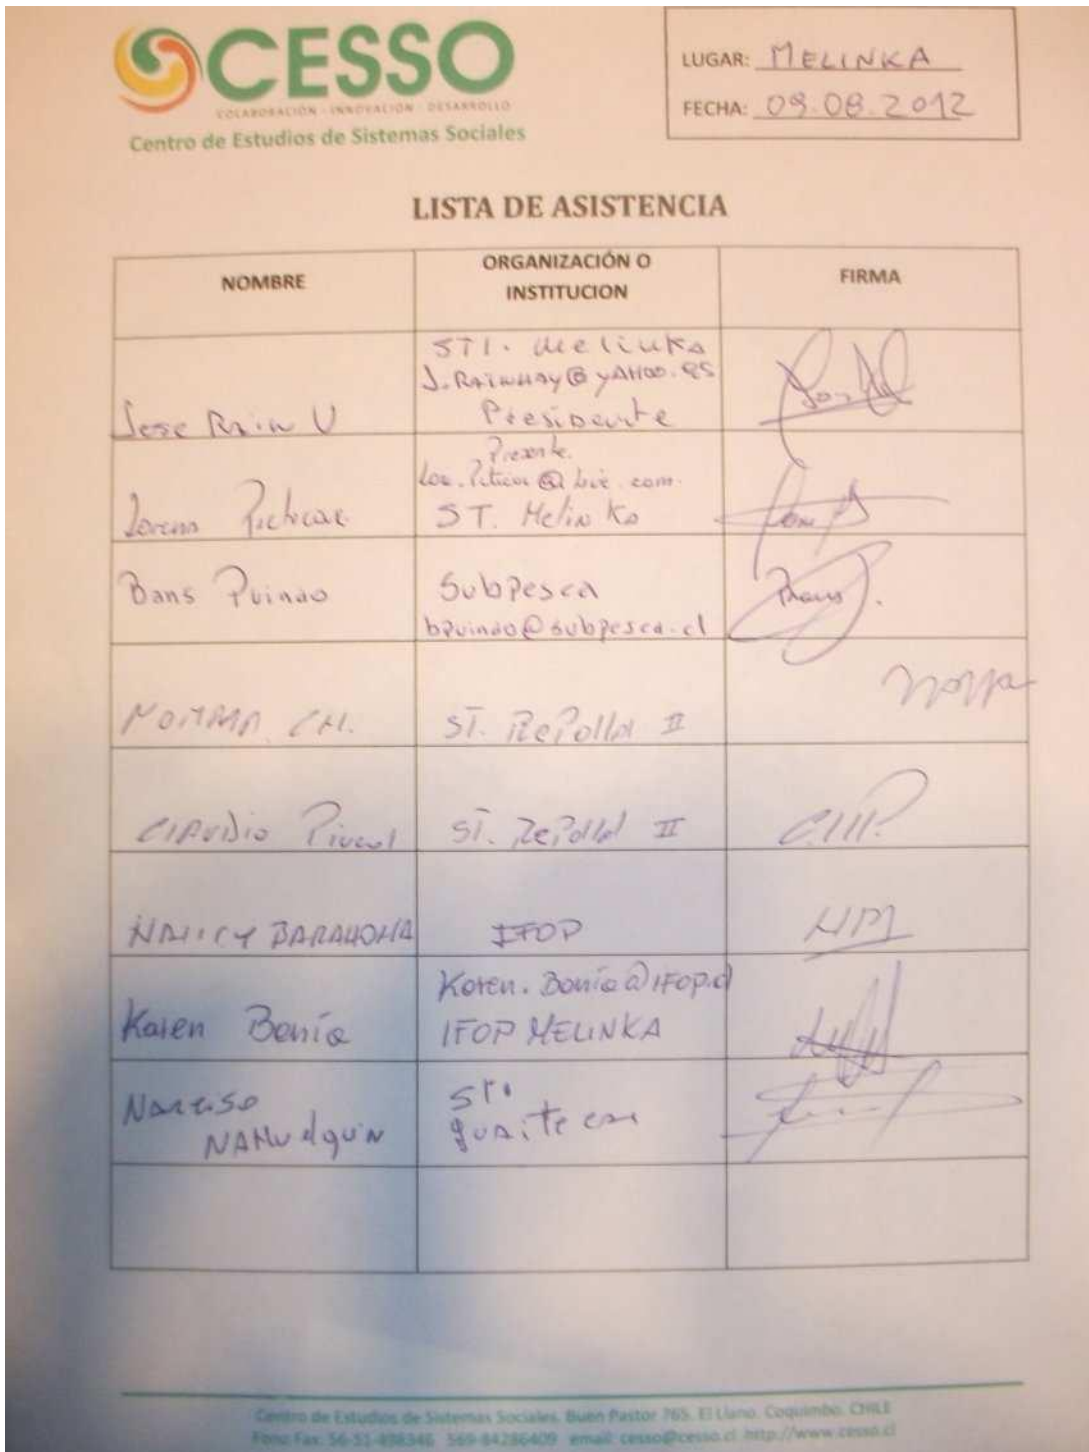 CESSO
COLABORACIÓN - INNOVACIÓN - DESARROLLO
Centro de Estudios de Sistemas Sociales
LUGAR: MELINKA
FECHA: 09.08.2012
LISTA DE ASISTENCIA
NOMBRE
ORGANIZACIÓN O
INSTITUCION
FIRMA
STI. Melinka
J.RAINHAY@YAHOO.ES
Presidente
Jose Rain U
ST. Melinka
Lorena
Bans Puinao
Subpesca
bpuinao@subpesca.cl
NORMA CH.
ST. RePollal II
CLAUDIO
ST. RePollal II
NANCY BARAHONA
IFOP
Karen Bonía
Karen.Bonía@IFOP.cl
IFOP MELINKA
Narciso
NAHuelquiN
STI
guaitecas
Centro de Estudios de Sistemas Sociales. Buen Pastor 765. El Llano. Coquimbo. CHILE
Fono Fax: 56-51-498346 569-84286409 email: cesso@cesso.cl http://www.cesso.cl